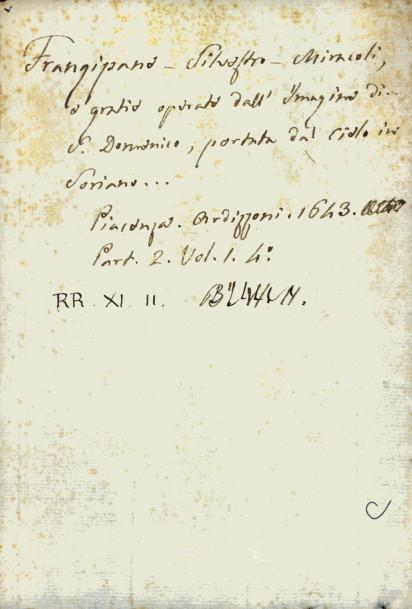 Frangipane - Silvestro - Miracoli,
e gratie operate dall' Imagine di
S. Domenico, portata dal Cielo in
Soriano...
Piacenza. Ardizzoni. 1643.
Part. 2. Vol. 1. 4º
RR XI II.